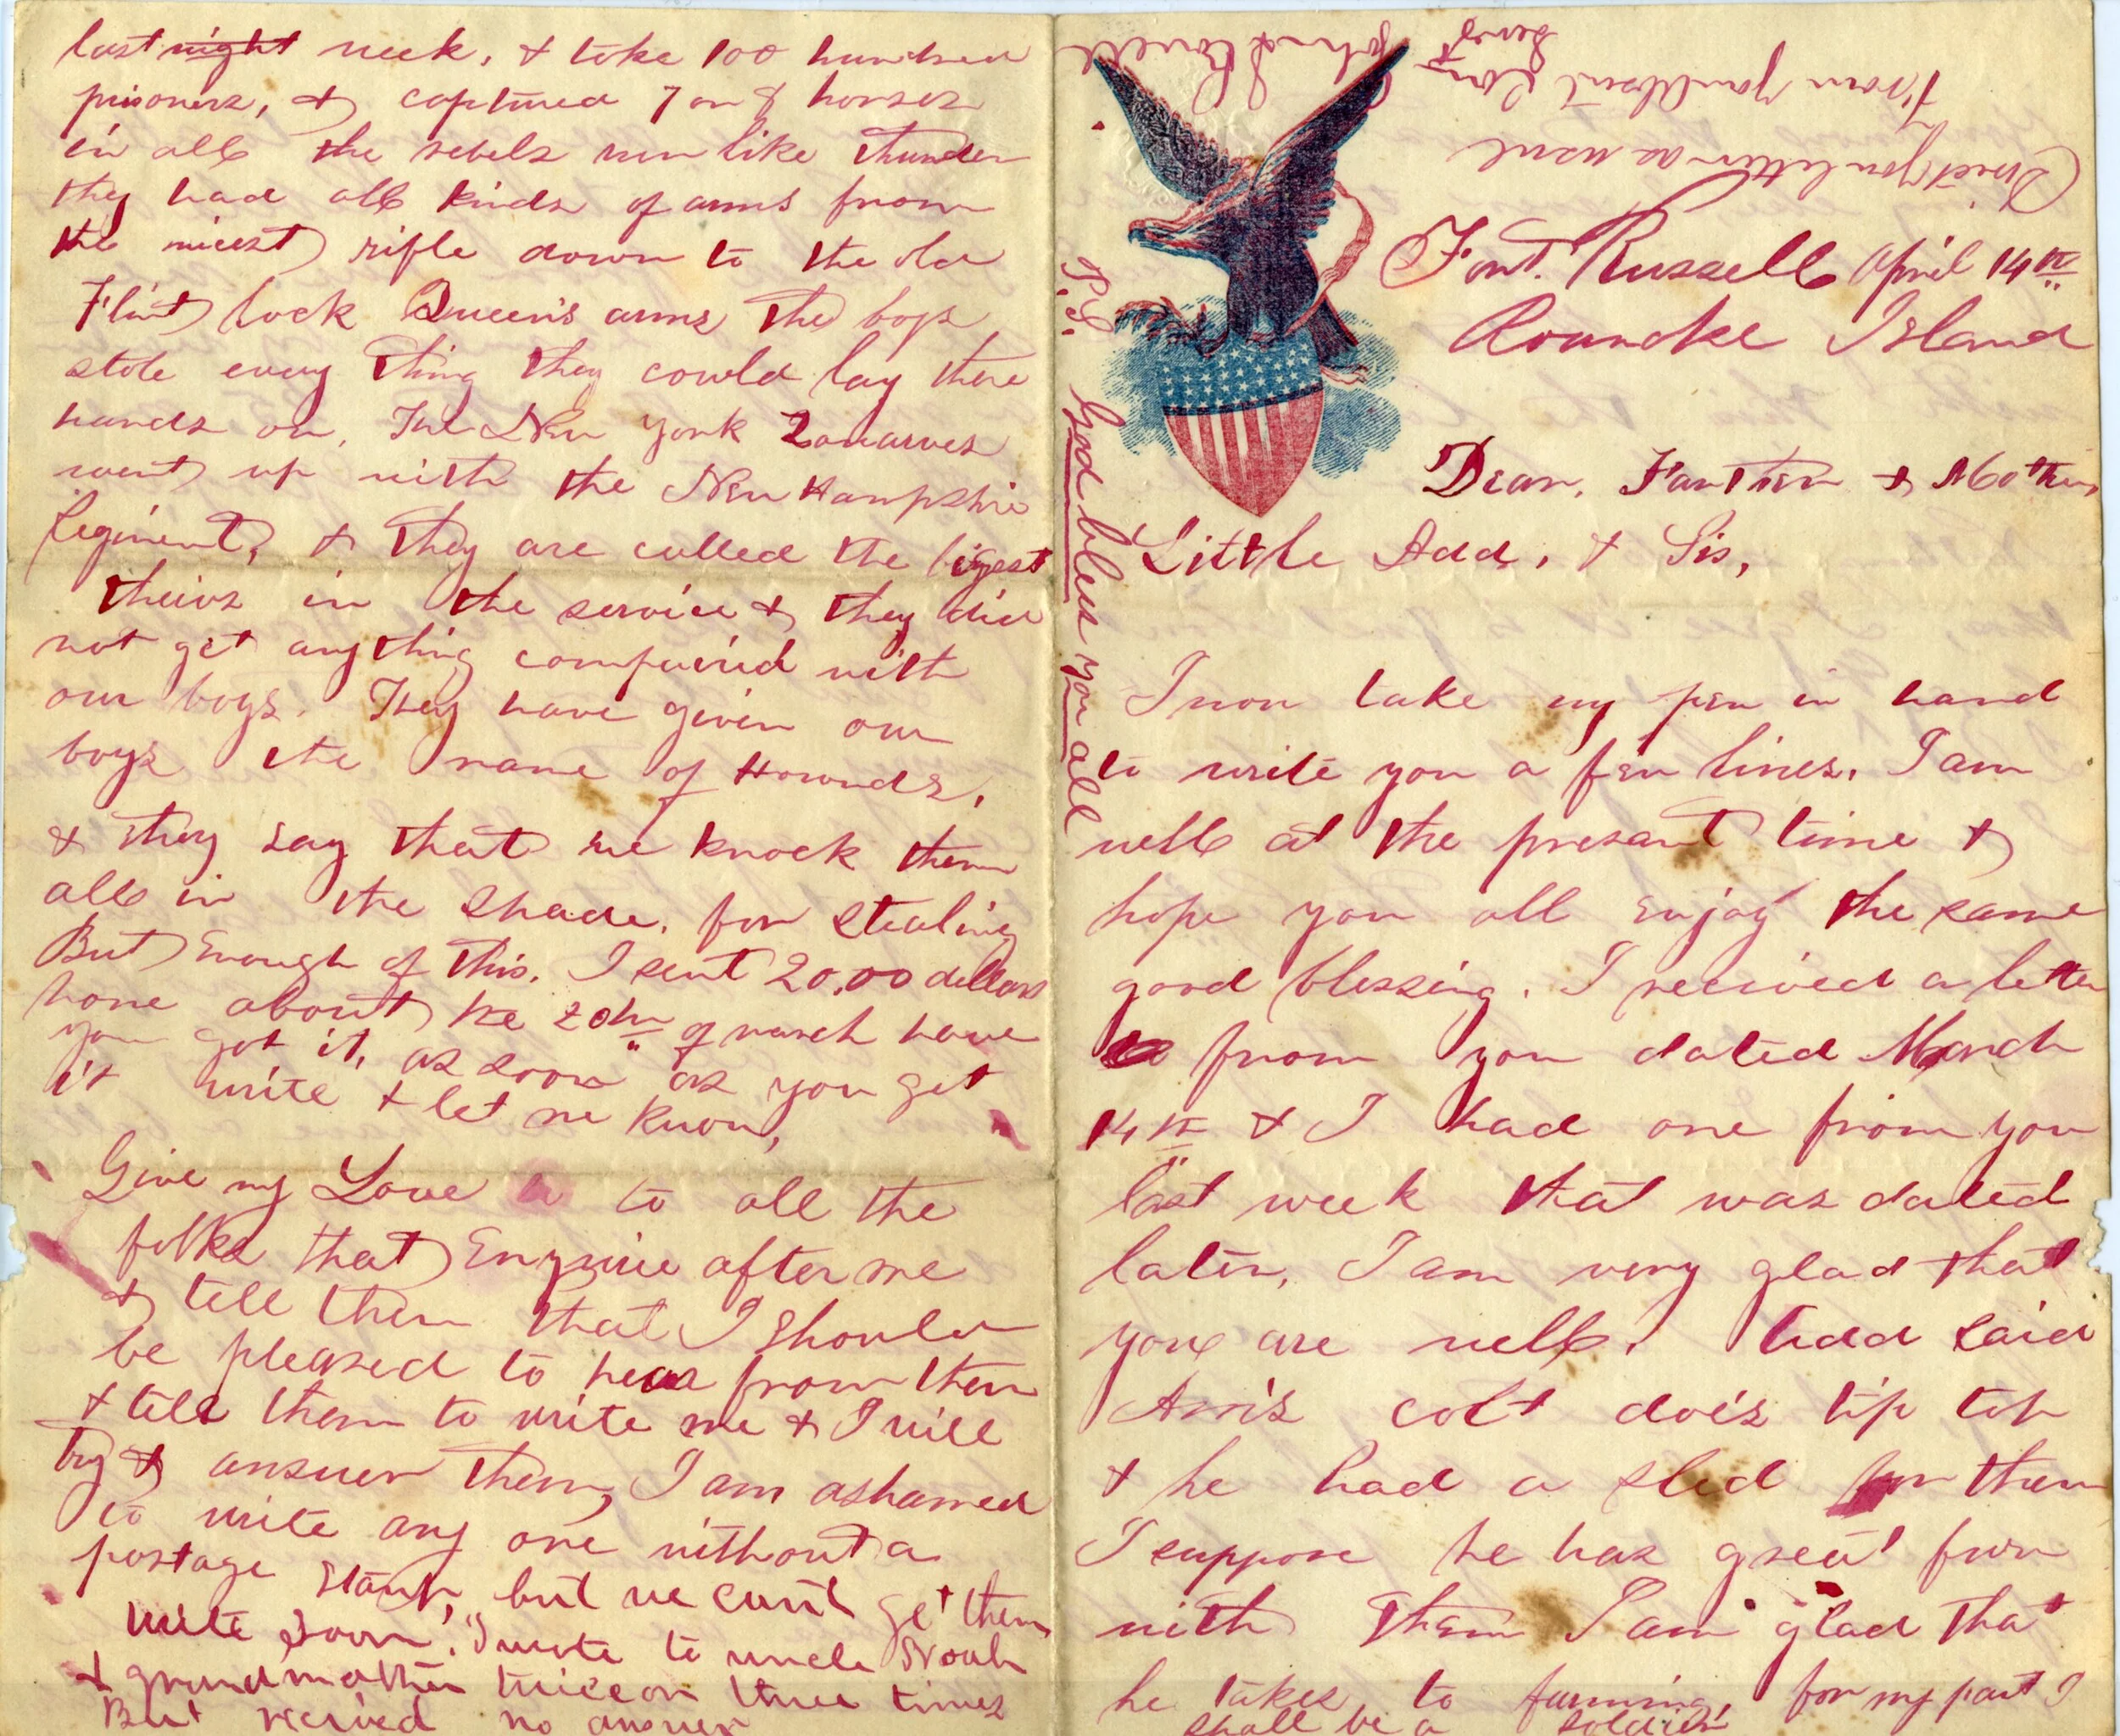 last night week, & take 100 hundred
prisoners, & captured 7 or 8 horses
in all the rebels run like thunder
they had all kinds of arms from
the nicest rifle down to the old
Flint lock Queen's arms the boys
stole every thing they could lay there
hands on. The New York Zouarves
went up with the New Hampshire
Regiment, & they are called the bigest
theivs in the service & they did
not get anything compaired with
our boys. They have given our
boys the name of Hounds,
& they say that we knock them
all in the shade, for stealing
But Enough of this. I sent 20.00 dollars
home about the 20th of march have
you got it, as soon as you get
it write & let me know,
Give my Love to all the
folks that Enquire after me
& tell them that I should
be pleased to hear from them
& tell them to write me & I will
try & answer them, I am ashamed
to write any one without a
postage stamp, but we can't get them
write soon. I wrote to uncle Noah
& grandmother twice or three times
But recived no answer
Fort. Russell April 14th
Roanoke Island
Dear. Farther & Mother
Little Add, & Sis,
I now take my pen in hand
to write you a few lines. I am
well at the presant time &
hope you all enjoy the same
good blessing. I recived a letter
from you dated March
14th & I had one from you
last week that was dated
later, I am very glad that
you are well. Add said
Avis colt does tip top
& he had a sled for them
I suppose he has great fun
with them I am glad that
he takes to farming, for my part I
shall be a soldier
P.S. God bless you all
Direct your letter as usual
From your Absent Son
John L Lovell
Serg't